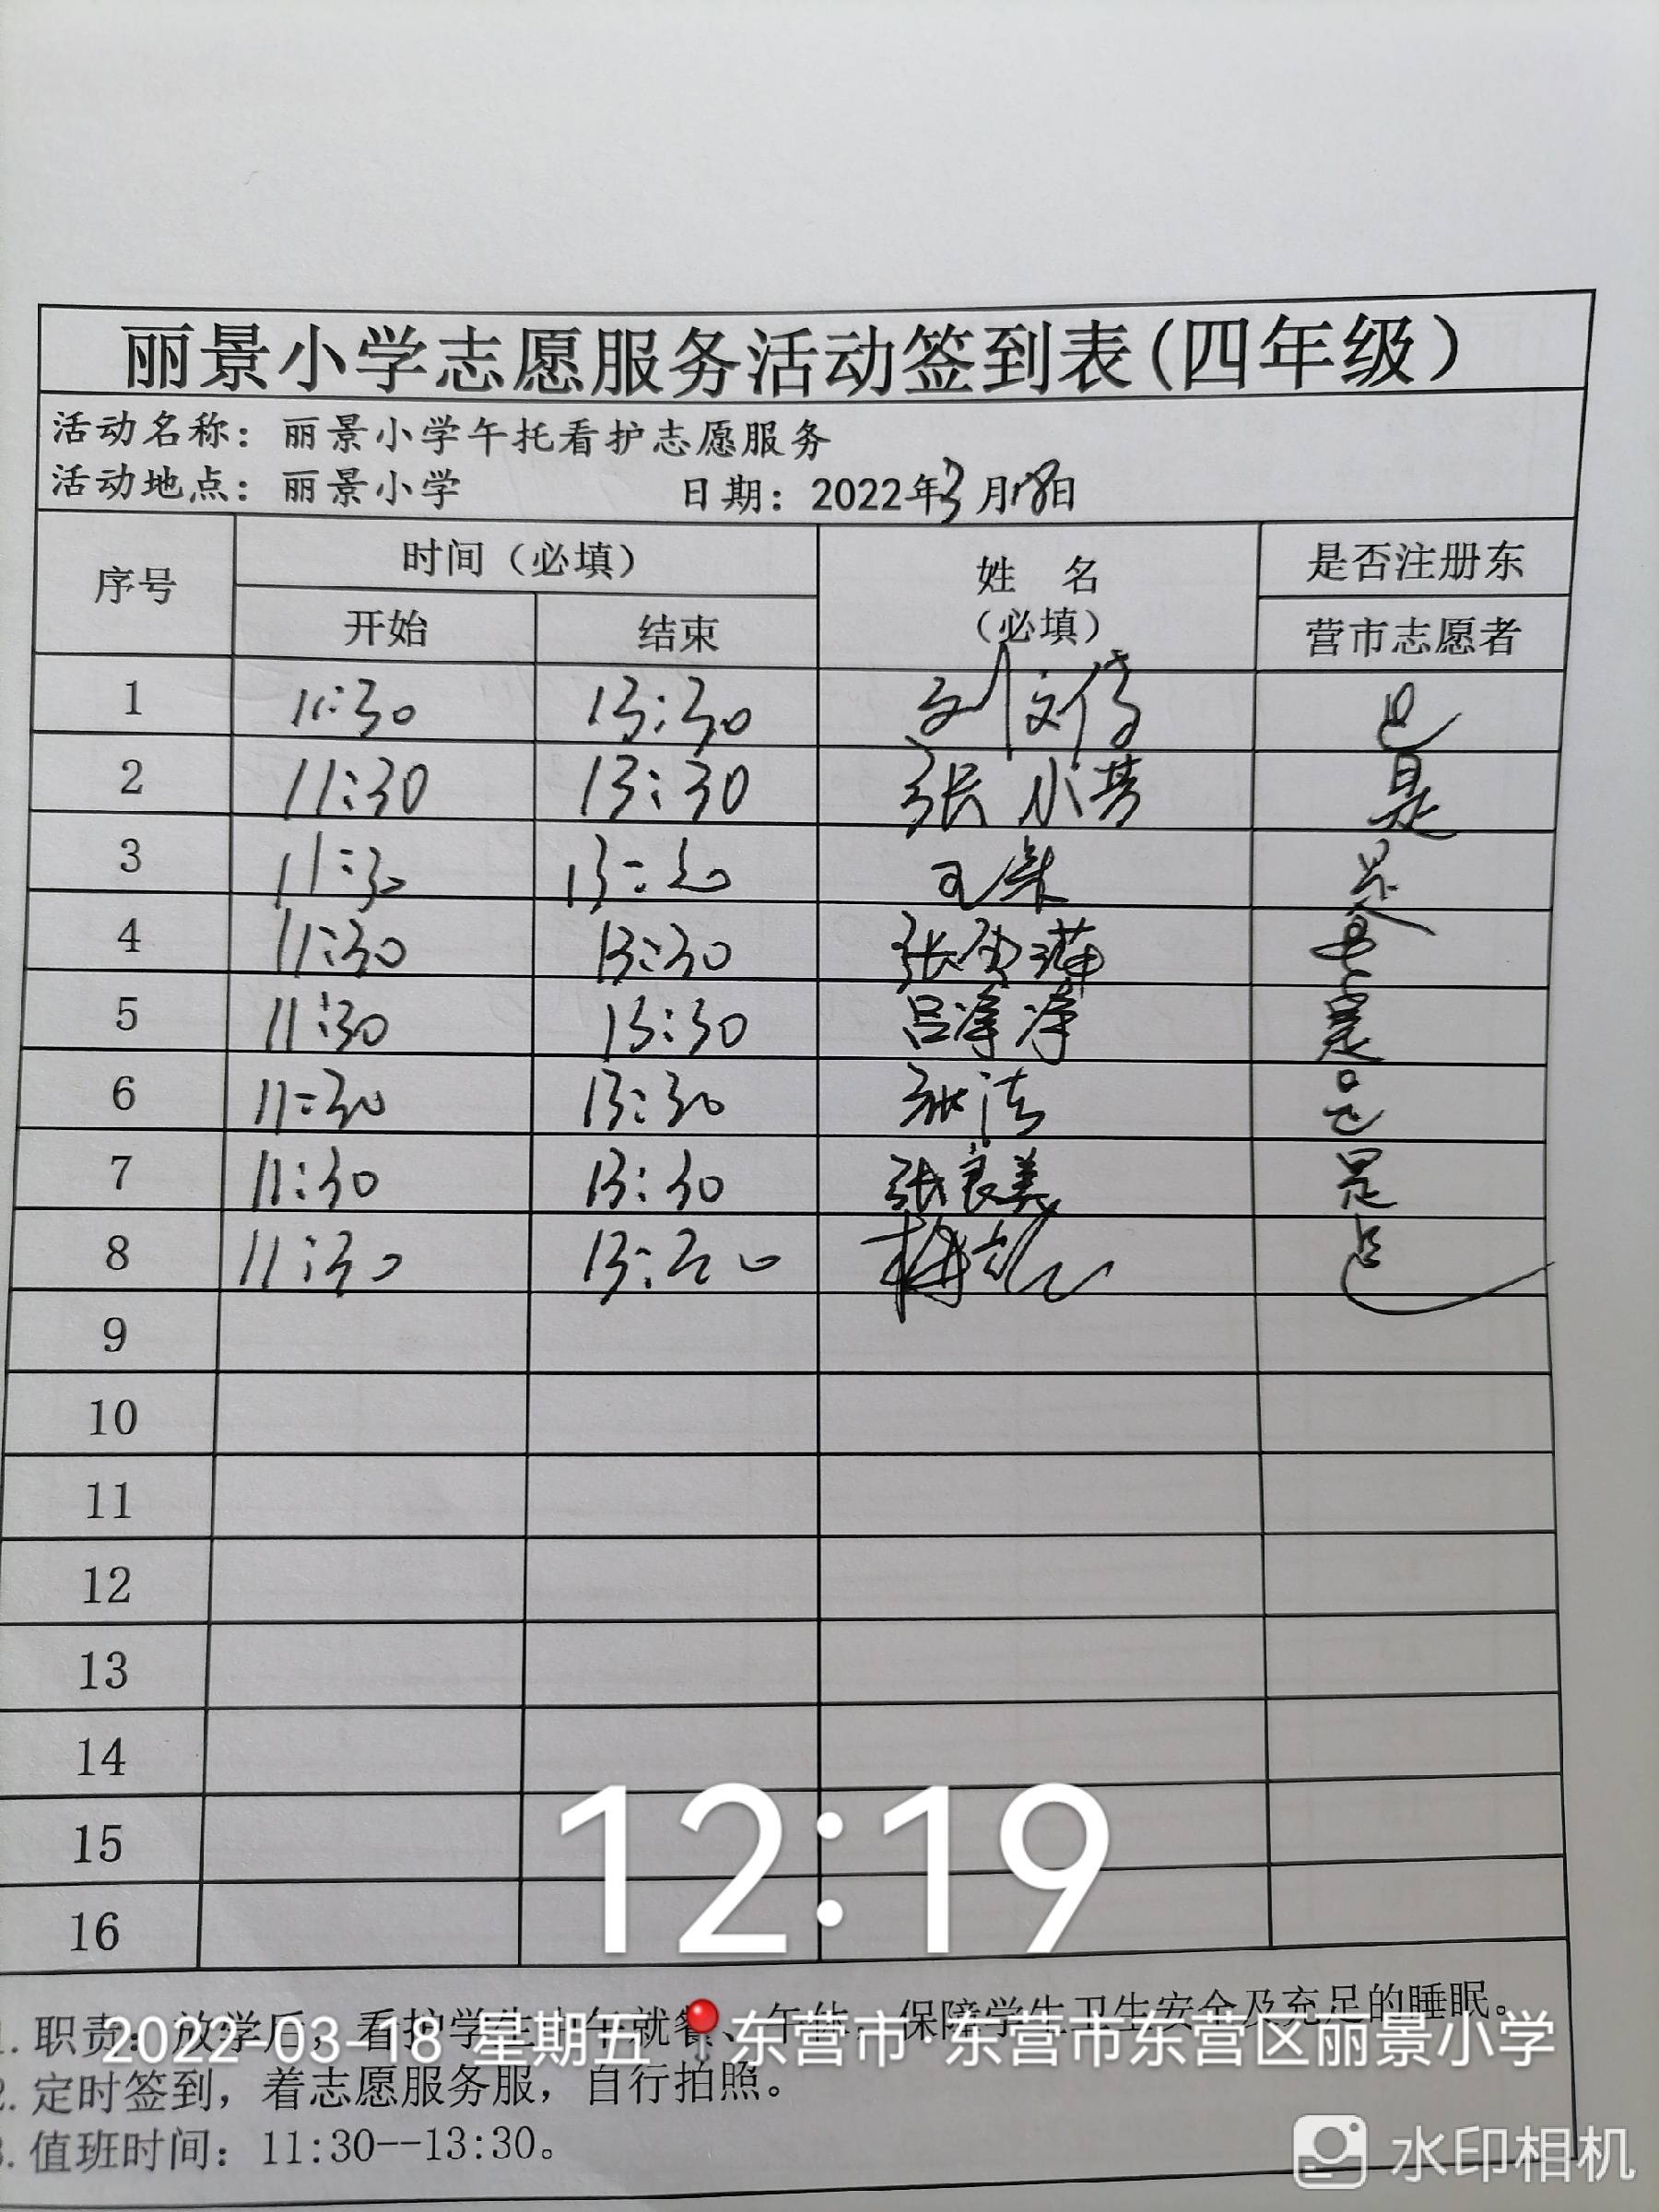 丽景小学志愿服务活动签到表(四年级）
活动名称：丽景小学午托看护志愿服务
活动地点：丽景小学 日期：2022年3月18日
序号 时间（必填） 姓 名（必填） 是否注册东营市志愿者
开始 结束
1 11:30 13:30 刘文倩 是
2 11:30 13:30 张小芳 是
3 11:30 13:30 是
4 11:30 13:30 是
5 11:30 13:30 吕净净 是
6 11:30 13:30 张洁 是
7 11:30 13:30 张良美 是
8 11:30 13:30 是
9
10
11
12
13
14
15
16
12:19
1.职责：放学后，看护学生中午就餐、午休，保障学生卫生安全及充足的睡眠。
2022-03-18 星期五 东营市·东营市东营区丽景小学
2.定时签到，着志愿服务服，自行拍照。
3.值班时间：11:30--13:30。
水印相机